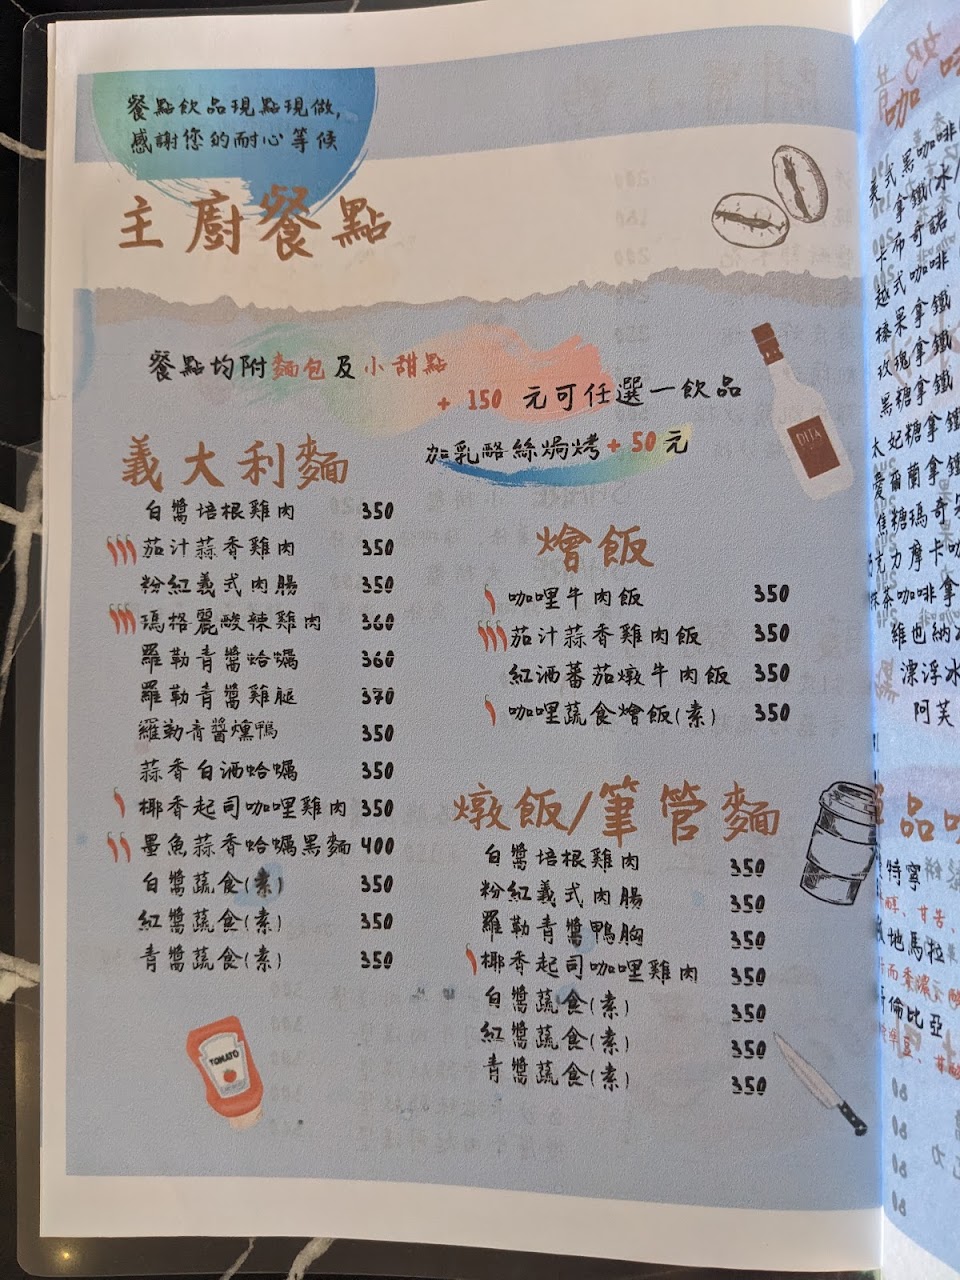 餐點飲品現點現做,
感謝您的耐心等候
主廚餐點
餐點均附麵包及小甜點
+ 150 元可任選一飲品
加乳酪絲焗烤+50元
義大利麵
白醬培根雞肉 350
茄汁蒜香雞肉 350
粉紅義式肉腸 350
瑪格麗酸辣雞肉 360
羅勒青醬蛤蠣 360
羅勒青醬雞腿 370
羅勒青醬燻鴨 350
蒜香白酒蛤蠣 350
椰香起司咖哩雞肉 350
墨魚蒜香蛤蠣黑麵 400
白醬蔬食(素) 350
紅醬蔬食(素) 350
青醬蔬食(素) 350
燴飯
咖哩牛肉飯 350
茄汁蒜香雞肉飯 350
紅酒蕃茄燉牛肉飯 350
咖哩蔬食燴飯(素) 350
燉飯/筆管麵
白醬培根雞肉 350
粉紅義式肉腸 350
羅勒青醬鴨胸 350
椰香起司咖哩雞肉 350
白醬蔬食(素) 350
紅醬蔬食(素) 350
青醬蔬食(素) 350
TOMATO
DITA
義式黑咖啡
拿鐵(冰/
卡布奇諾
越式咖啡
榛果拿鐵
玫瑰拿鐵
黑糖拿鐵
太妃糖拿鐵
愛爾蘭拿鐵
焦糖瑪奇朵
力摩卡咖
抹茶咖啡拿
維也納
漂浮冰
阿芙
品咖
特寧
醇、甘苦、
地馬拉
倫比亞